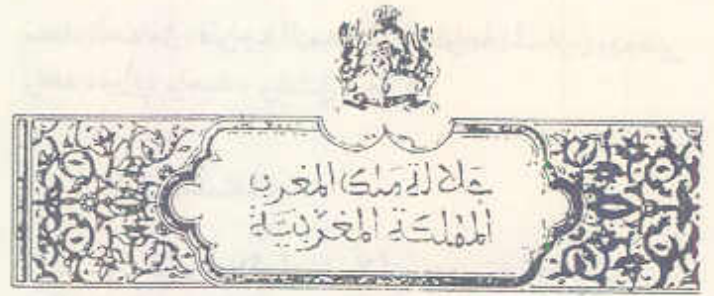 جلالة ملك المغرب
المملكة المغربية